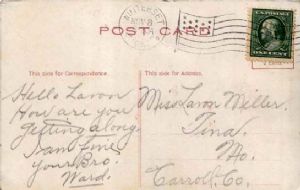 WINTERSET
NOV 8
POST CARD
This side for Correspondence.
This side for Address.
ONE CENT
Hello Lavon
How are you
getting along
I am fine
your Bro.
Ward.
Miss Lavon Miller.
Tina,
Mo.
Carroll, Co.